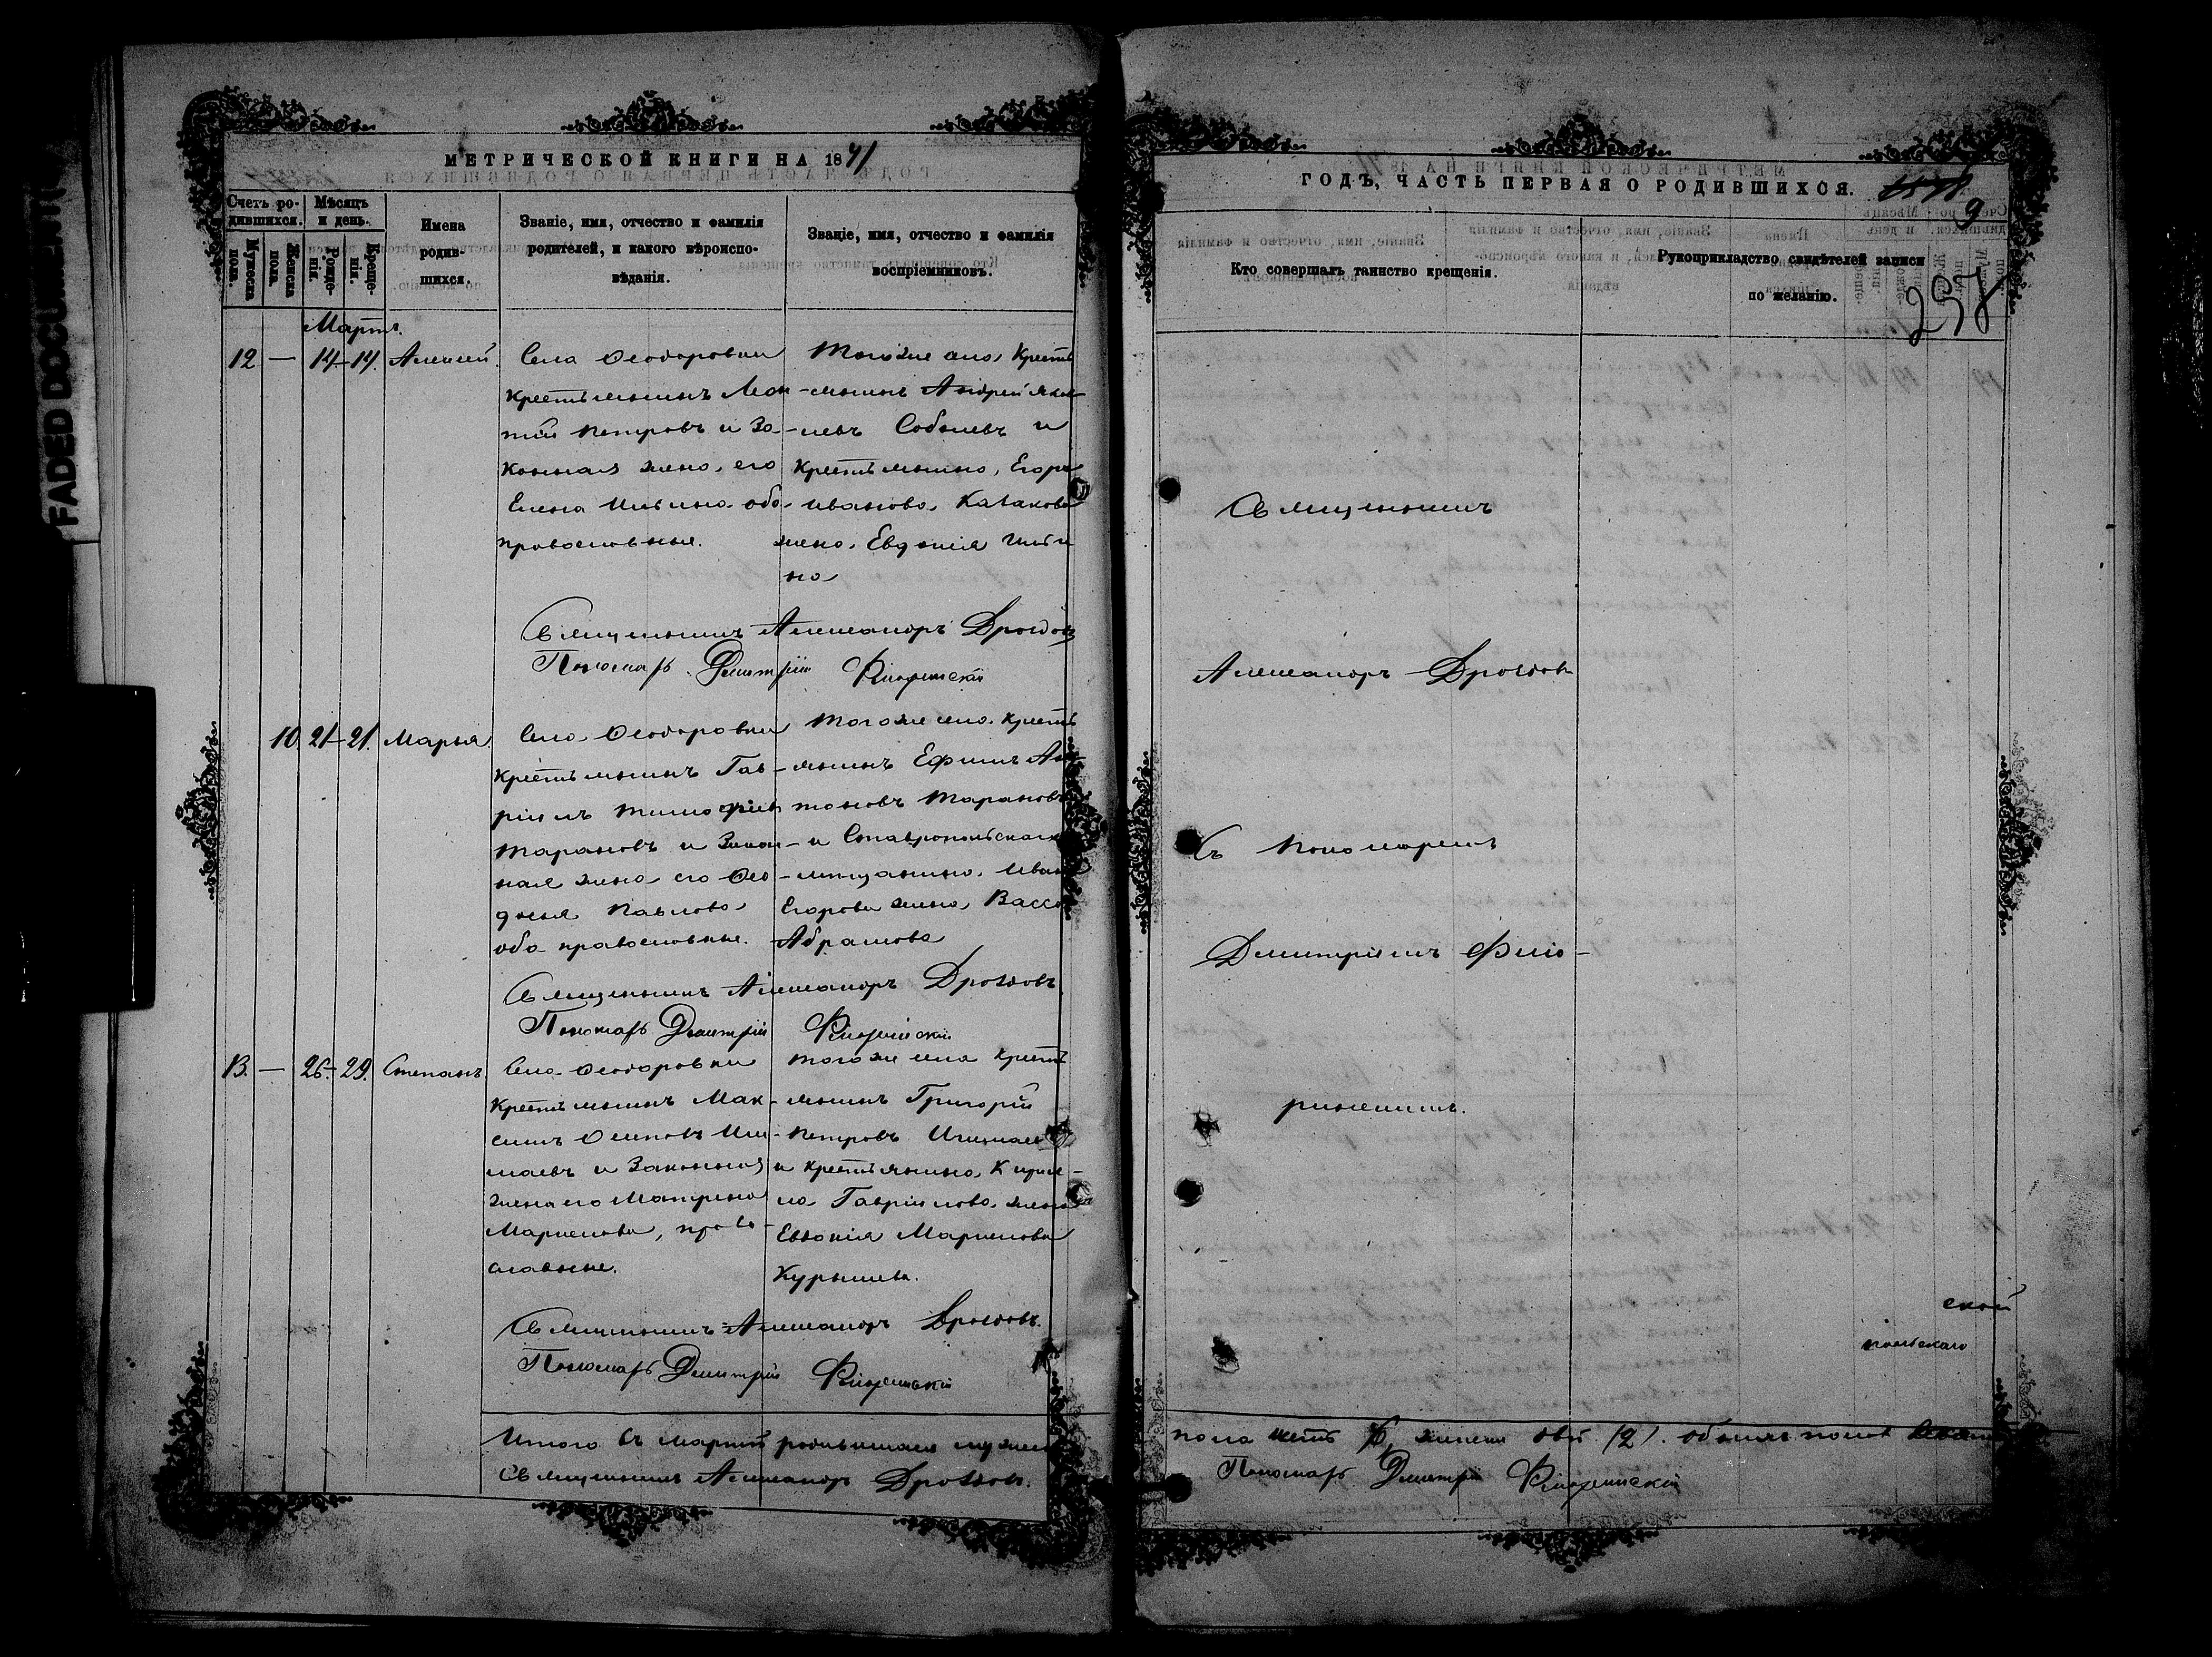 FADED DOCUMENT
МЕТРИЧЕСКОЙ КНИГИ НА 1871
Счетъ ро-
дившихся.
Мужеска
пола.
Женска
пола.
Мѣсяцъ
и день.
Рожде-
нія.
Креще-
нія.
Имена
родив-
шихся.
Званіе, имя, отчество и фамилія
родителей, и какого вѣроиспо-
вѣданія.
Званіе, имя, отчество и фамилія
воспріемниковъ.
Мартъ.
12 — 14 — 14. Алексей.
Села Ѳеодоровки
крестьянинъ
Петровъ и за-
конная жена его
Елена Ильина оба
православные.
Тогоже села крестъ
-янинъ Андрей Яков-
-левъ Соболевъ и
крестьянина Егора
Иванова Казакова
жена Евдокія Ильи
на
Священникъ Александръ Дроздовъ
Пономарь Дмитрій Флоринскій
10. 21 — 21. Марья.
Села Ѳеодоровки
крестьянинъ Гав-
ріилъ Тимофѣевъ
Тарановъ и закон-
ная жена его Ѳео-
досья Павлова
оба православные.
Тогоже села крестъ
-янинъ Ефимъ Ан-
тоновъ Тарановъ
и Ставропольскаго
мѣщанина Ивана
Егорова жена Васса
Абрамова
Священникъ Александръ Дроздовъ
Пономарь Дмитрій Флоринскій
13. — 26 — 29. Степанъ.
Села Ѳеодоровки
крестьянинъ Мак-
симъ Осиповъ
и законная
жена его Матрена
Маркелова, право-
славные.
Тогоже села крестъ
-янинъ Григорій
Петровъ
и крестьянина Кирил-
ла Гаврілова жена
Евдокія Маркелова
Курышева.
Священникъ Александръ Дроздовъ.
Пономарь Дмитрій Флоринскій
Итого въ Мартѣ родившихся мужеска
Священникъ Александръ Дроздовъ.
ГОДЪ, ЧАСТЬ ПЕРВАЯ О РОДИВШИХСЯ.
9
Кто совершалъ таинство крещенія.
Рукоприкладство свидѣтелей записи
по желанію.
Священникъ
Александръ Дроздовъ
Съ Пономаремъ
Дмитріемъ Фло-
ринскимъ.
пола женска обоего пола
Пономарь Дмитрій Флоринскій